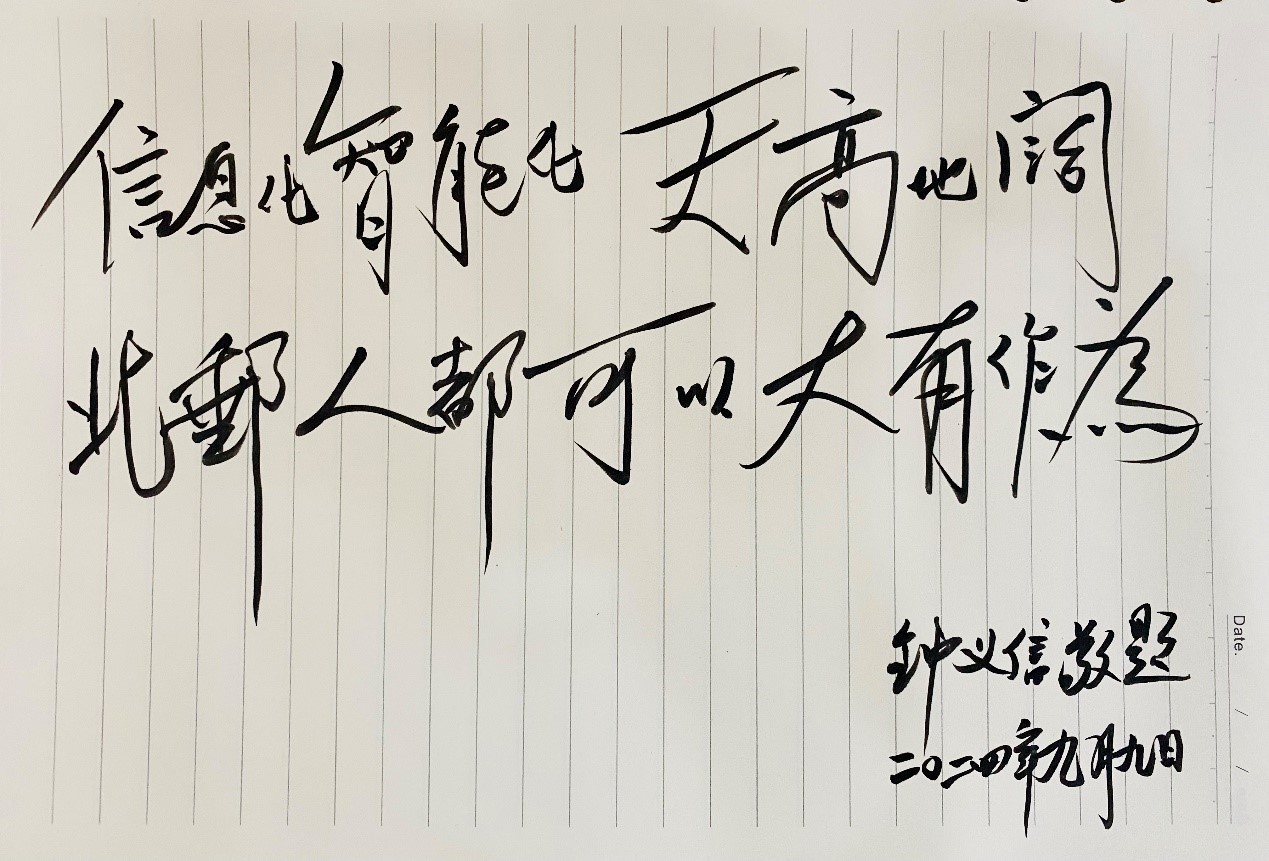 信息化智能化 天高地阔
北郵人都可以大有作為
钟义信敬题
二〇二四年九月九日
Date. / /